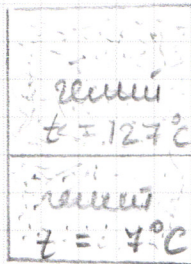 гелий
t = 127°C
гелий
t = 7°C